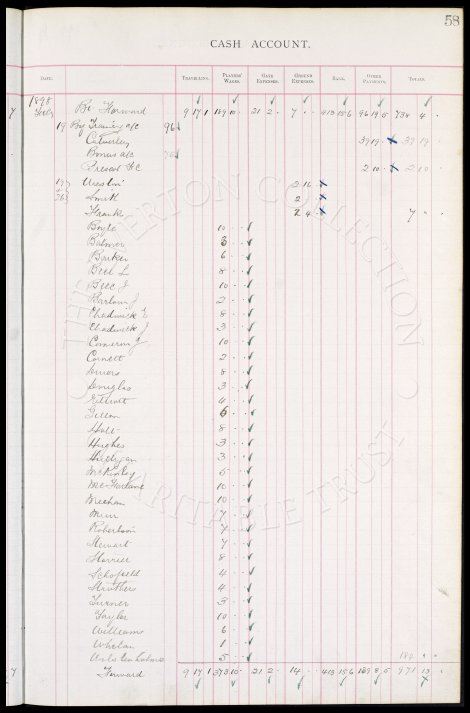 58
CASH ACCOUNT.
DATE. TRAVELLING. PLAYERS' WAGES. GATE EXPENSES. GROUND EXPENSES. BALL. OTHER PAYMENTS. TOTALS.
1898
Bt Forward 9 17 1 189 10 21 2 7 413 15 6 96 19 5 738 4
19 By Training a/c 96
Calverley 39 19 39 19
Bonus a/c
2 10 2 10
19 2 16
26 Smith 2
Frank 2 4 7
Boyle 10
Balmer 3
Barker 6
Bell L 8
Bell J 10
Barlow J 2
Chadwick E 8
Chadwick J 3
Cameron J 10
Cornett 2
8
Douglas 3
Elliott 4
Gillan 6
Holt 8
Hughes 3
3
McKinley 6
McFarlane 10
Meehan 10
Muir 7
Robertson 7
Stewart 7
8
Schofield 4
Struthers 4
Turner 3
Taylor 10
Williams 6
Whelan 1
Wolstenholme 5 184
Forward 9 17 1 373 10 21 2 14 413 15 6 139 8 5 971 13
THE EVERTON COLLECTION CHARITABLE TRUST